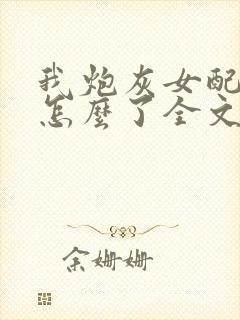 我炮灰女配
怎麼了全文
余姗姗